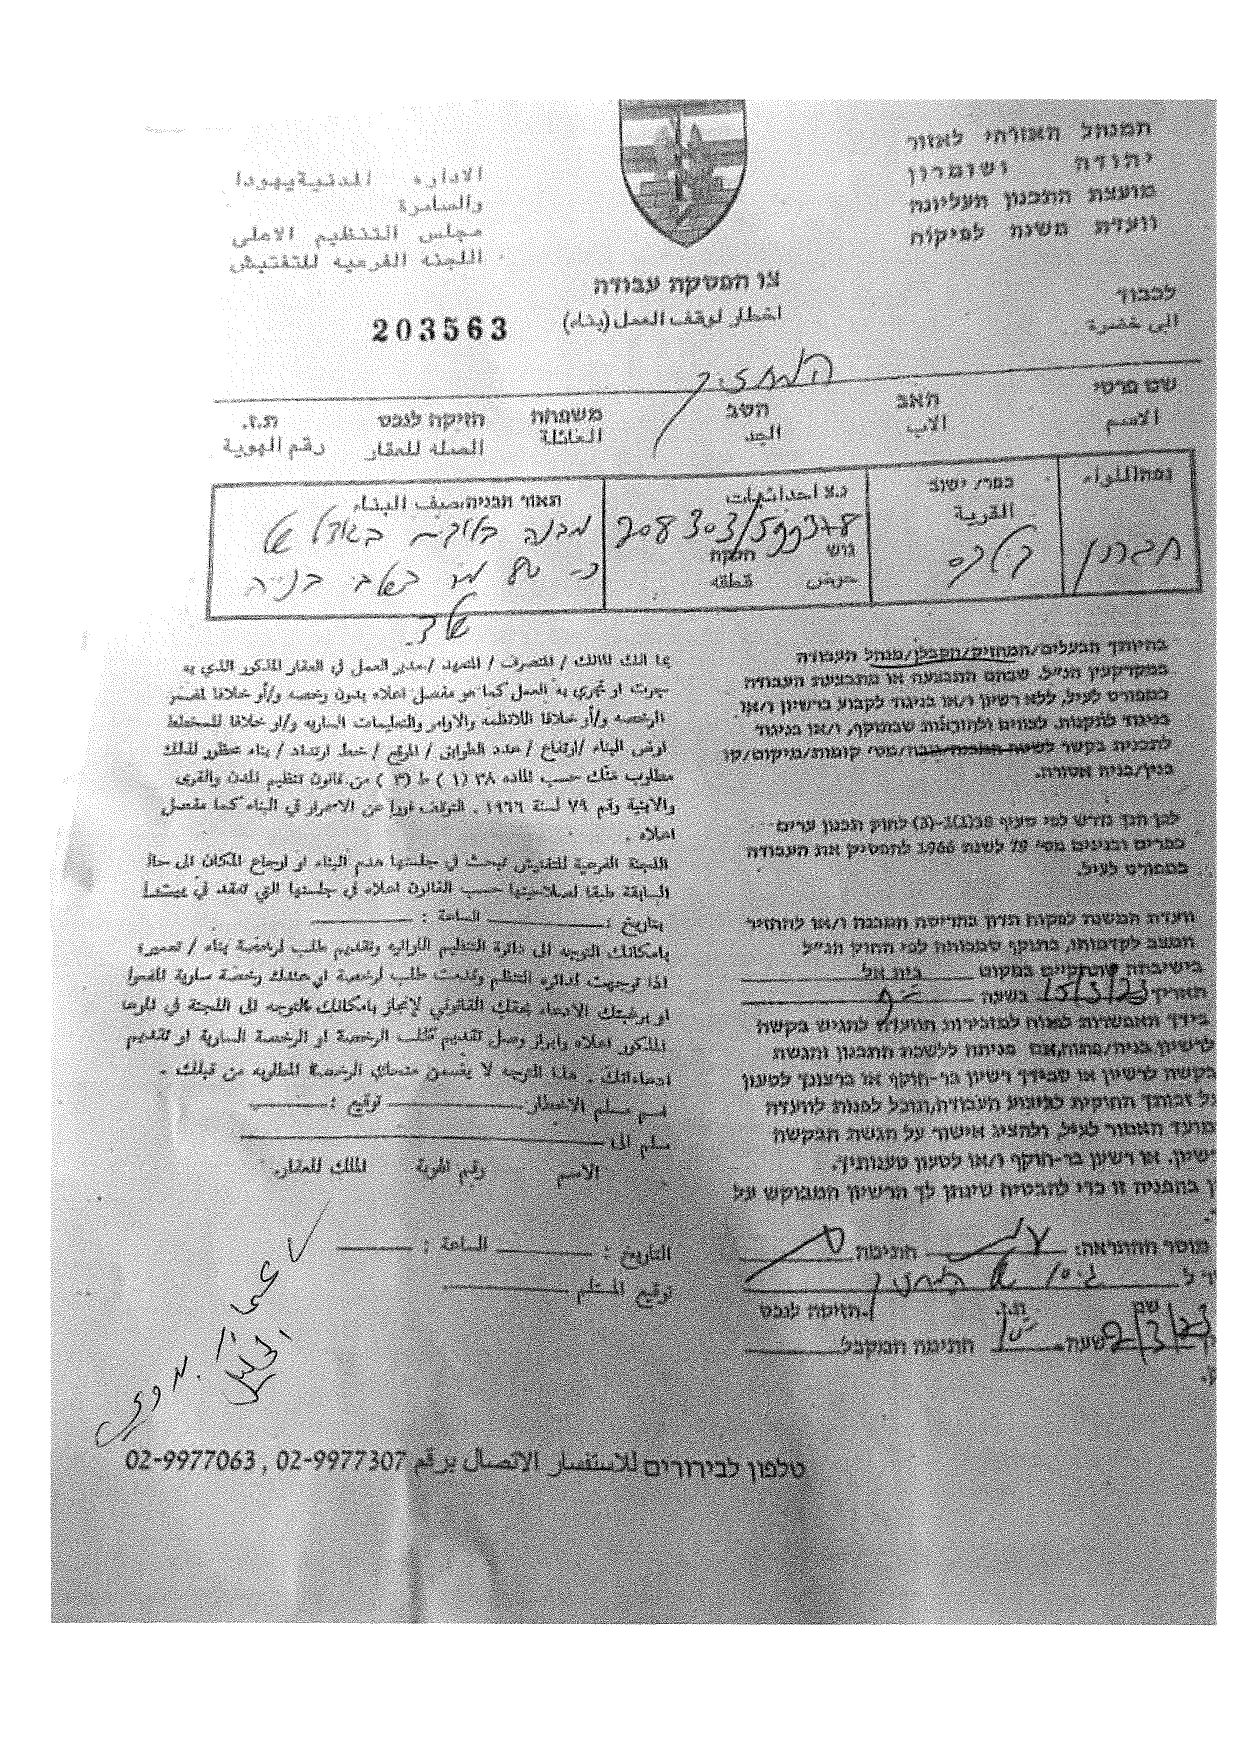 המנהל האזרחי לאזור
יהודה ושומרון
מועצת התכנון העליונה
וועדת משנה לפיקוח
الاداره المدنية يهودا
والسامرة
مجلس التنظيم الاعلى
اللجنه الفرعيه للتفتيش
צו הפסקת עבודה
اخطار لوقف العمل (بناء)
203563
לכבוד
الى حضرة:
המחזיק
שם פרטי האב הסב משפחה הזיקה לנכס ת.ז.
الاسم الاب الجد العائلة الصله للعقار رقم الهوية
נפה/اللواء
חברון
כפר/ ישוב
القرية
נ.צ احداثيات
208303/599378
גוש חלקה
حوض قطعه
תאור הבניה/وصف البناء
מבנה
בהיותך הבעלים/המחזיק/הקבלן/מנהל העבודה
במקרקעין הנ"ל, שבהם התבצעה או מתבצעת העבודה
כמפורט לעיל, ללא רשיון ו/או בניגוד לקבוע ברשיון ו/או
בניגוד לתקנות, לצווים ולהוראות שבתוקף, ו/או בניגוד
לתכנית בקשר קומות/מיקום/קו
בנין/בניה אסורה.
לכן הנך נדרש לפי סעיף 38(1)-(3) לחוק תכנון ערים
כפרים ובנינים מס' 79 לשנת 1966 להפסיק את העבודה
כמפורט לעיל.
וועדת המשנה לפקוח תדון בהריסת המבנה ו/או להחזיר
המצב לקדמותו, בתוקף סמכותה לפי החוק הנ"ל
בישיבתה שתתקיים במקום בית אל
תאריך 15/3/23 בשעה
בידך האפשרות לפנות למזכירות הוועדה להגיש בקשה
לרשיון בניה/פתוח, אם פניתה ללשכת התכנון והגשת
בקשה לרשיון או שבידך רשיון בר-תוקף או ברצונך לטעון
על זכותך החוקית לביצוע העבודה, תוכל לפנות לוועדה
מועד האמור לעיל, ולהציג אישור על הגשת הבקשה
רשיון, או רשיון בר-תוקף ו/או לטעון טענותיך.
ן בהפניה זו כדי להבטיח שינתן לך הרשיון המבוקש על
מוסר ההתראה: חתימה
שם ת.ז. הזיקה לנכס
2/3/23 שעה חתימת המקבל
بما انك المالك / المتصرف / المتعهد / مدير العمل في العقار المذكور الذي به
جرت او تجري به العمل كما هو مفصل اعلاه بدون رخصه و/أو خلافا لمفسر
الرخصه و/أو خلافا للانظمه والاوامر والتعليمات الساريه و/او خلافا للمخطط
لوضع البناء /ارتفاع / عدد الطوابق / الموقع / خط ارتداد / بناء محظور لذلك
مطلوب منك حسب الماده ٣٨ (١) ط (٣) من قانون تنظيم المدن والقرى
والابنية رقم ٧٩ لسنة ١٩٦٦ . التوقف فورا عن الاستمرار في البناء كما مفصل
اعلاه .
اللجنة الفرعية للتفتيش تبحث في جلستها هدم البناء او ارجاع المكان الى حاله
السابقة طبقا لصلاحيتها حسب القانون اعلاه في جلستها التي تنعقد في
بتاريخ : الساعة :
بامكانك التوجه الى دائرة التنظيم اللوائيه وتقديم طلب لرخصة بناء / تعميرة
اذا توجهت لدائره التنظم وقدمت طلب لرخصة او عندك رخصة سارية المفعول
او برغبتك الادعاء بحقك القانوني لإنجاز بامكانك التوجه الى اللجنة في الموعد
المذكور اعلاه وابراز وصل تقديم طلب الرخصة او الرخصة السارية او تقديم
ادعاءاتك . هذا التوجه لا يضمن منحك الرخصة المطلوبه من قبلك .
اسم مسلم الاخطار توقيع :
سلم الى
الاسم رقم الهوية الملك للعقار.
التاريخ : الساعة :
توقيع المستلم
טלפון לבירורים للاستفسار الاتصال برقم 02-9977307 , 02-9977063